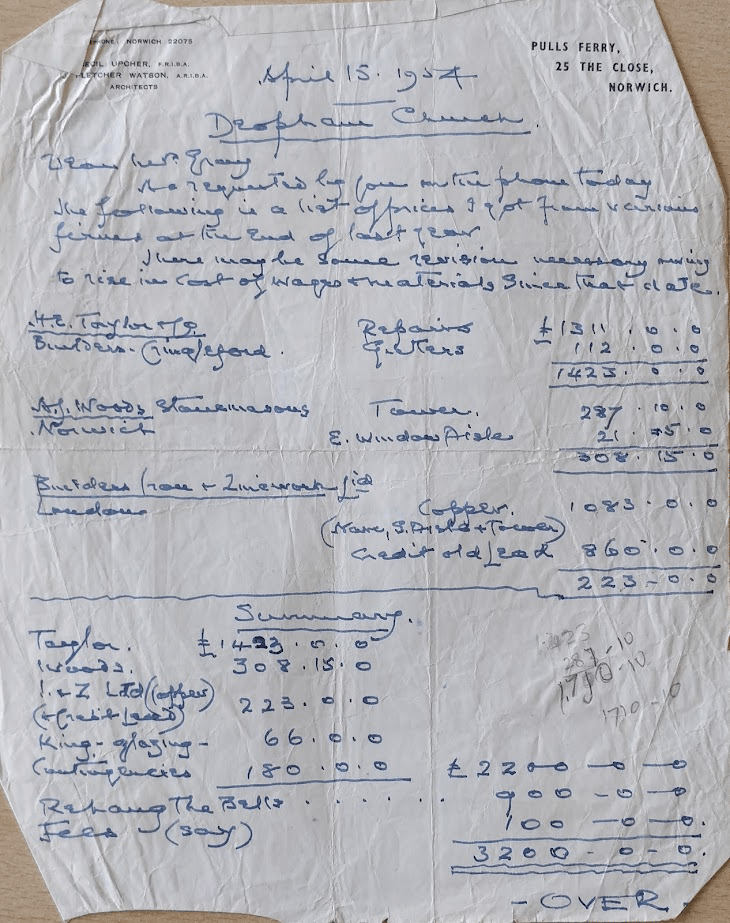 PHONE: NORWICH 22075
CECIL UPCHER, F.R.I.B.A.
FLETCHER WATSON, A.R.I.B.A.
ARCHITECTS
PULLS FERRY,
25 THE CLOSE,
NORWICH.
April 15. 1954
Deopham Church.
Dear Mr Gray
As requested by you on the phone today
the following is a list of prices I got from various
firms at the end of last year
There may be some revision necessary owing
to rise in cost of wages & materials since that date.
H.E. Taylor & Co. Repairs £1311.0.0
Builders. Gutters 112.0.0
1423.0.0
A.J. Woods Stonemasons Tower. 287.10.0
Norwich E. Window Aisle 21.5.0
308.15.0
Builders Iron & Zincwork Ltd
London Copper. 1083.0.0
(Nave, S. Aisle & Tower)
Credit old Lead 860.0.0
223-0.0
Summary.
Taylor. £1423.0.0
Woods. 308.15.0
I. & Z Ltd (Copper)
(& Credit Lead) 223.0.0
King-glazing- 66.0.0
Contingencies 180.0.0 £2200-0-0
Rehang The Bells ....... 900-0-0
Fees (say) 100-0-0.
3200-0-0.
1423
287-10
1710-10
1710-10
-OVER-